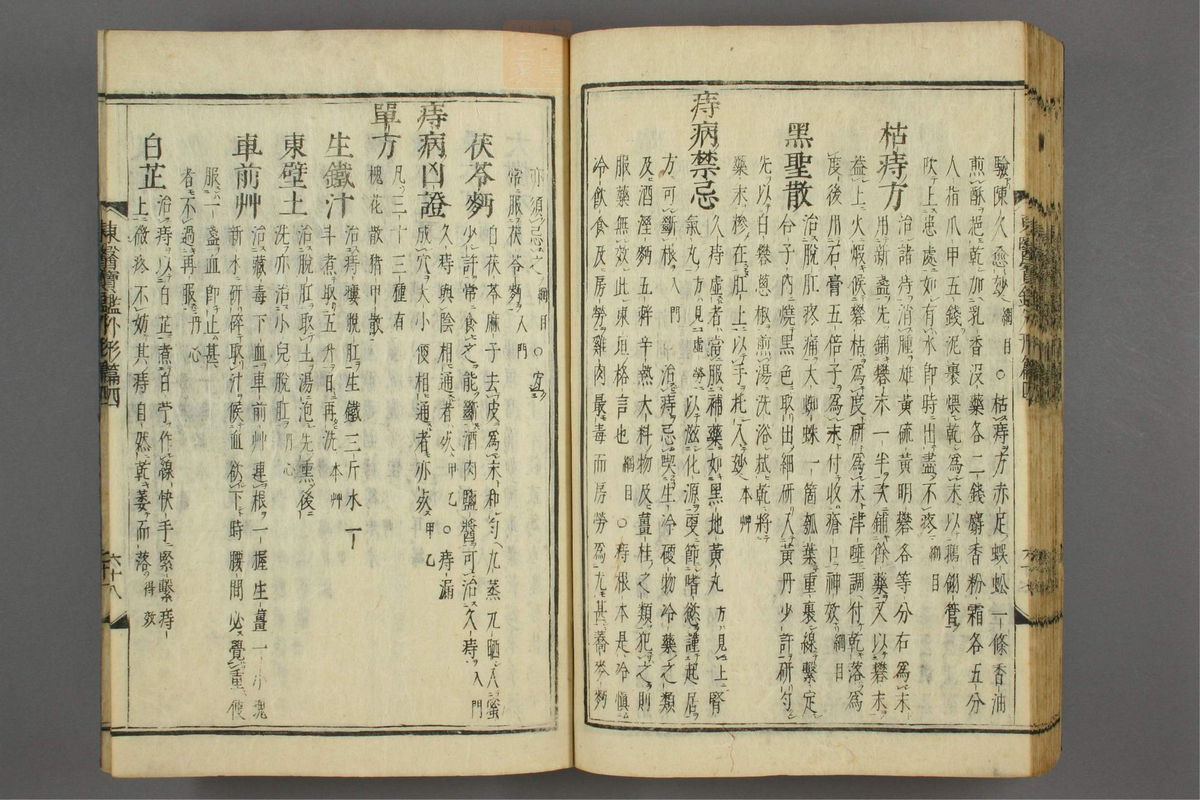 驗陳久愈妙 綱目 ○枯痔方赤足蜈蚣一條香油
煎酥挹乾加乳香沒藥各二錢麝香粉霜各五分
人指爪甲五錢泥裹煨乾爲末以鵝翎管
吹上患處如有水卽時出盡不疼 綱目
枯痔方 治諸痔消腫雄黃硫黃明礬各等分右爲末
用新盞先鋪礬末一半次鋪餘藥又以礬末
蓋上火煅候礬枯爲度硏爲末津唾調付乾落爲
度後用石膏五倍子爲末付收瘡口神效 綱目
黑聖散 治脫肛疼痛大蜘蛛一箇瓠葉重裹線繫定
合子內燒黑色取出細硏入黃丹少許硏勻
先以白礬葱椒煎湯洗浴拭乾將
藥末糝在肛上以手托入妙 本艸
痔病禁忌 久痔虛者當服補藥如黑地黃丸 方見上 腎
氣丸 方見虛勞 以滋化源更節嗜慾謹起居
方可斷根 入門 治痔忌喫生冷硬物冷藥之類
及酒溼麪五辣辛熱大料物及薑桂之類犯之則
服藥無效此東垣格言也 綱目 ○痔根本是冷愼
冷飮食及房勞雞肉最毒而房勞爲尤甚蕎麥麪
亦須忌之 綱目 ○
常服茯苓麪 入門
茯苓麪 白茯苓麻子去皮爲末和勻九蒸九晒入蜜
少許常食之能斷酒肉鹽醬可治久痔 入門
痔病凶證 久痔與陰相通者死 甲乙 ○痔漏
成穴大小便相通者亦死 甲乙
單方 凡三十三種有
槐花散猪甲散
生鐵汁 治痔瘻脫肛生鐵三斤水一
斗煮取五升日再洗 本艸
東壁土 治脫肛取土湯泡先熏後
洗亦治小兒脫肛 丹心
車前艸 治藏毒下血車前艸連根一握生薑一小塊
新水硏碎取汁候血欲下時腰間必覺重便
服一盞血卽止甚
者不過再服 丹心
白芷 治痔以白芷煮白苧作線快手緊繫痔
上微疼不妨其痔自然乾萎而落 得效
東醫寶鑑外形篇四
六十八